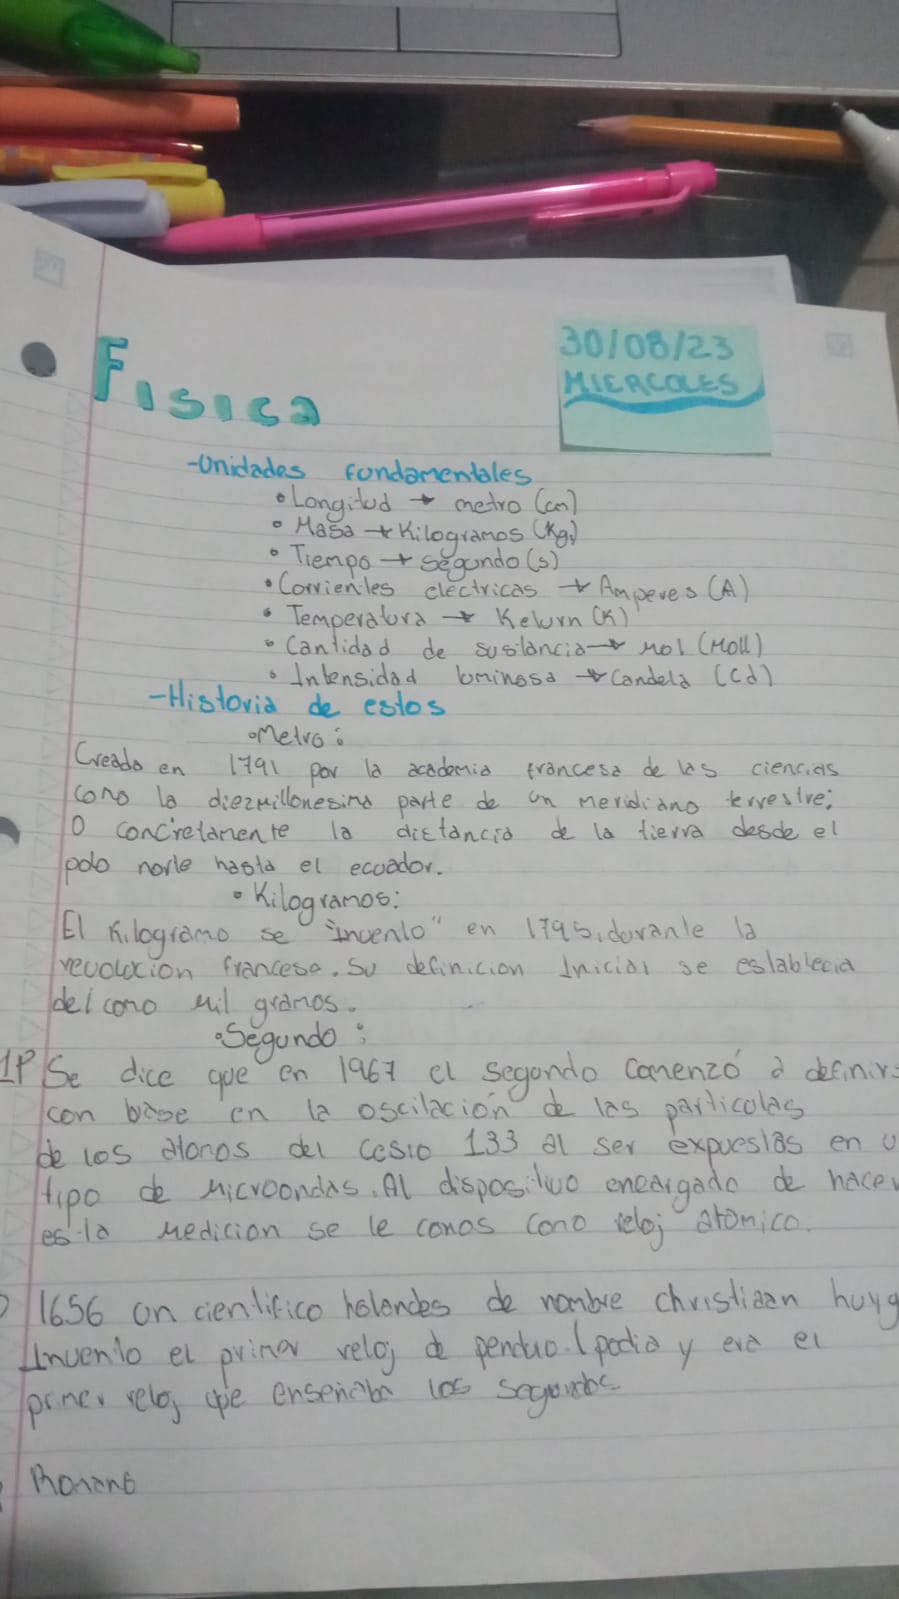 Fisica
30/08/23
MIERCOLES
-Unidades fundamentales
• Longitud → metro (cm)
• Masa → Kilogramos (Kg)
• Tiempo → Segundo (s)
• Corrientes electricas → Amperes (A)
• Temperatura → Kelvrn (K)
• Cantidad de sustancia → mol (Moll)
• Intensidad luminosa → Candela (Cd)
-Historia de estos
•Metro:
Creado en 1791 por la academia francesa de las ciencias
como la diezmillonesima parte de un meridiano terrestre;
O concretamente la distancia de la tierra desde el
polo norte hasta el ecuador.
• Kilogramos:
El Kilogramo se "invento" en 1795, durante la
revolucion francesa. Su definicion Inicial se establecia
del como mil gramos.
•Segundo:
1P Se dice que en 1967 el segundo comenzó a definirs
con base en la oscilación de las particulas
de los atomos del Cesio 133 al ser expuestas en u
tipo de microondas. Al dispositivo encargado de hacer
esta medicion se le conos como reloj atomico.
1656 un cientifico holandes de nombre christiaan huyg
Invento el primer reloj de penduo. (podia y era el
primer reloj que enseñaba los segundos